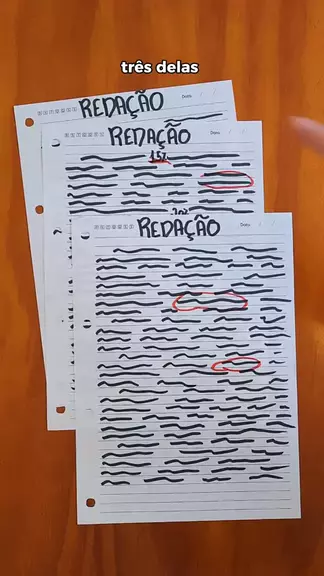 três delas
REDAÇÃO
Data: / /
REDAÇÃO
REDAÇÃO
Data: / /